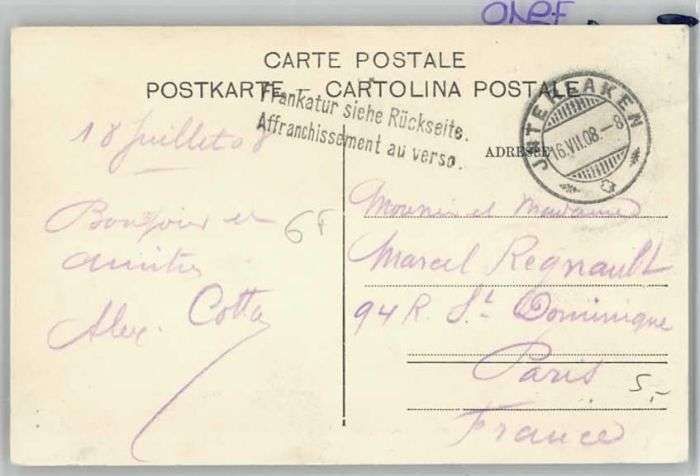 CARTE POSTALE
POSTKARTE – CARTOLINA POSTALE
Frankatur siehe Rückseite.
Affranchissement au verso.
INTERLAKEN
16.VII.08.–8
ADRESSE
18 Juillet 08
Bonjour et
amitiés
Alex. Cotta
6F
Monsieur et Madame
Marcel Regnault
94 R. St Dominique
Paris
France
5,-